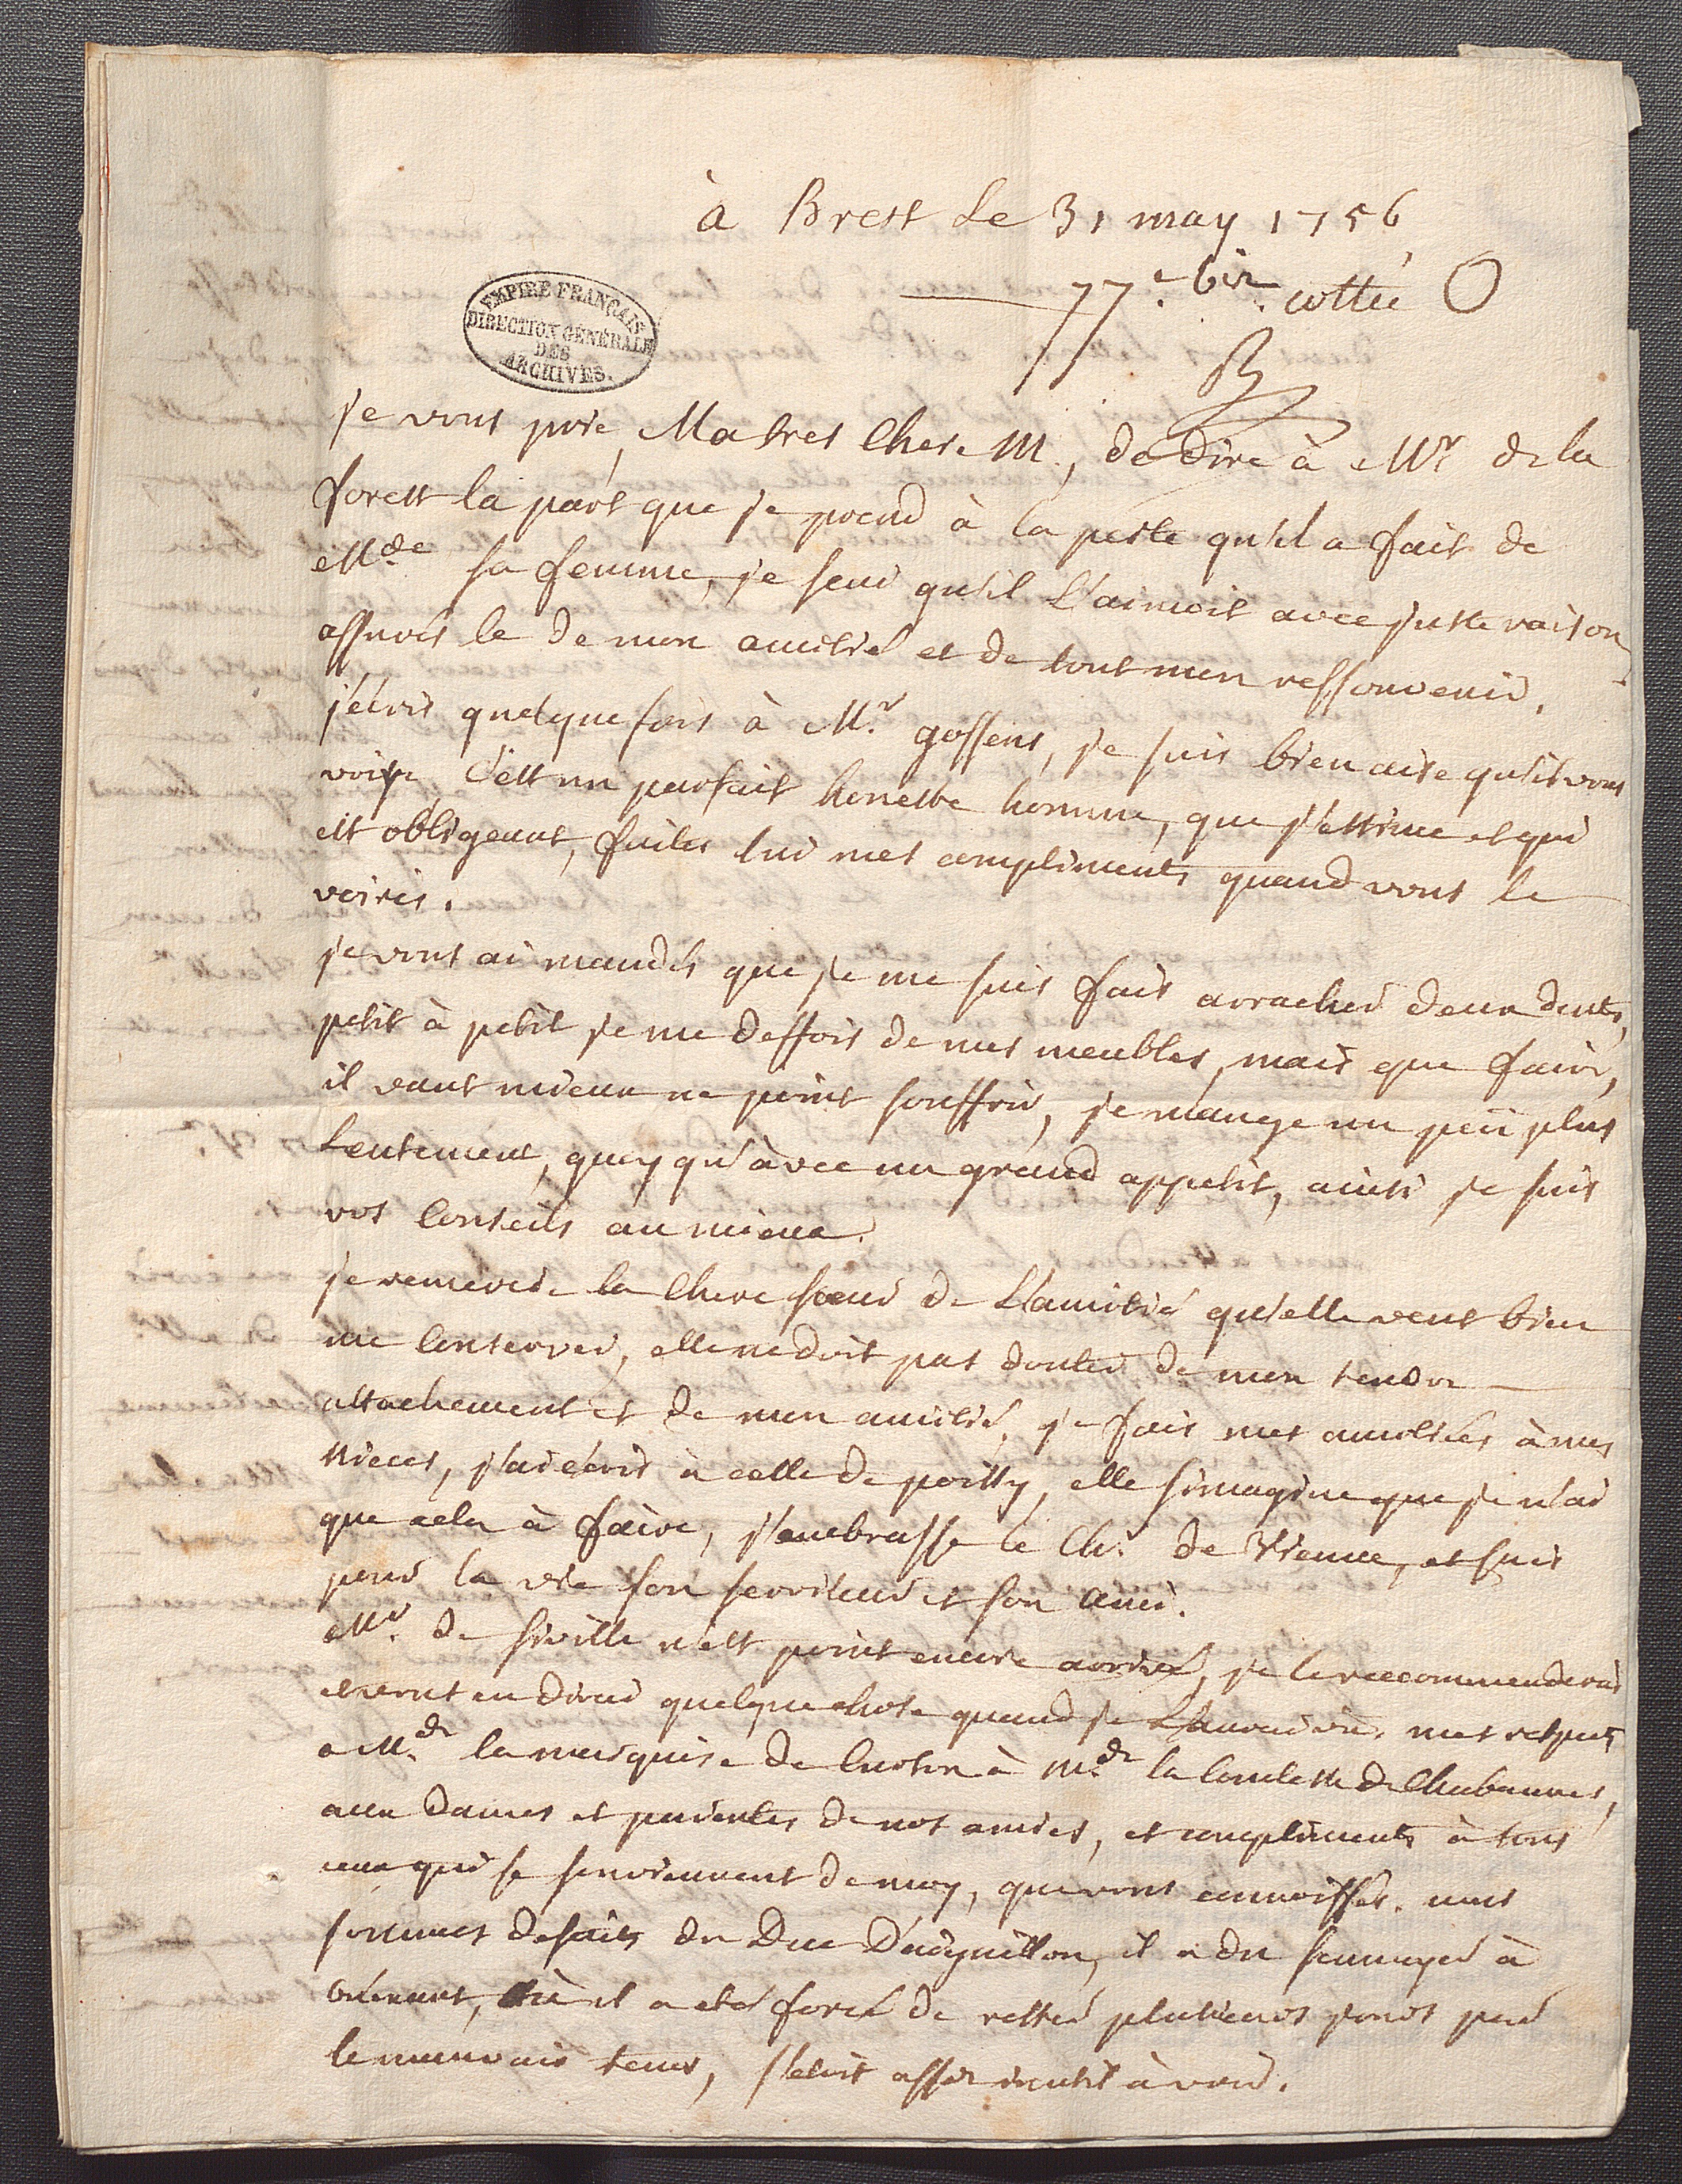 à Brest le 31 may 1756
77.e bis. cottée O
EMPIRE FRANÇAIS
DIRECTION GÉNÉRALE
DES
ARCHIVES.
je vous prie, Ma tres Chere M., de dire à Mr de la
forest la part que je prend à la perte qu'il a fait de
Mde sa femme, je scai qu'il l'aimoit avec juste raison,
assurés le de mon amitié et de tout mon ressouvenir.
j'écris quelque fois à Mr. gossens, je suis bien aise qu'il vous
voiye c'est un parfait honeste homme, que j'estime et qui
est obligeant, faites lui mes compliments quand vous le
veirés.
je vous ai mandés que je me suis fait arracher deux dents,
petit à petit je me deffois de mes meubles, mais que faire,
il vaut mieux ne point souffrir, je mange un peü plus
Lentement, quoy qu'avec un grand appetit, ainsi je suis
vos Conseils au mieux.
je remercie la Chere soeur de L'amitié qu'elle veut bien
me Conserver, elle ne doit pas douter de mon tendre
attachement et de mon amitié. je fais mes amitiés à mes
nieces, j'ai écris à celle de poissy, elle s'imagine que je n'ai
que cela à faire, j'embrasse le Ch. de Vienne, et suis
pour la vie son serviteur et son ami.
Mr. de siville n'est point encore arrivé, je le reccommenderai
et vous en dirai quelque chose quand je l'aurai vu. mes respects
a Mde la marquise de Curton à Mde la Comtesse de Chabannes,
aux dames et parentes de nos amies, et compliments à tous
ceux qui se souviennent de moy, que vous connoissés. nous
sommes defaits du Duc D'aiguillon, il a du s'ennuyer à
oüessant, où il a eté forcé de rester plusieurs jours par
le mauvais tems, s'etoit assés inutil à voir.